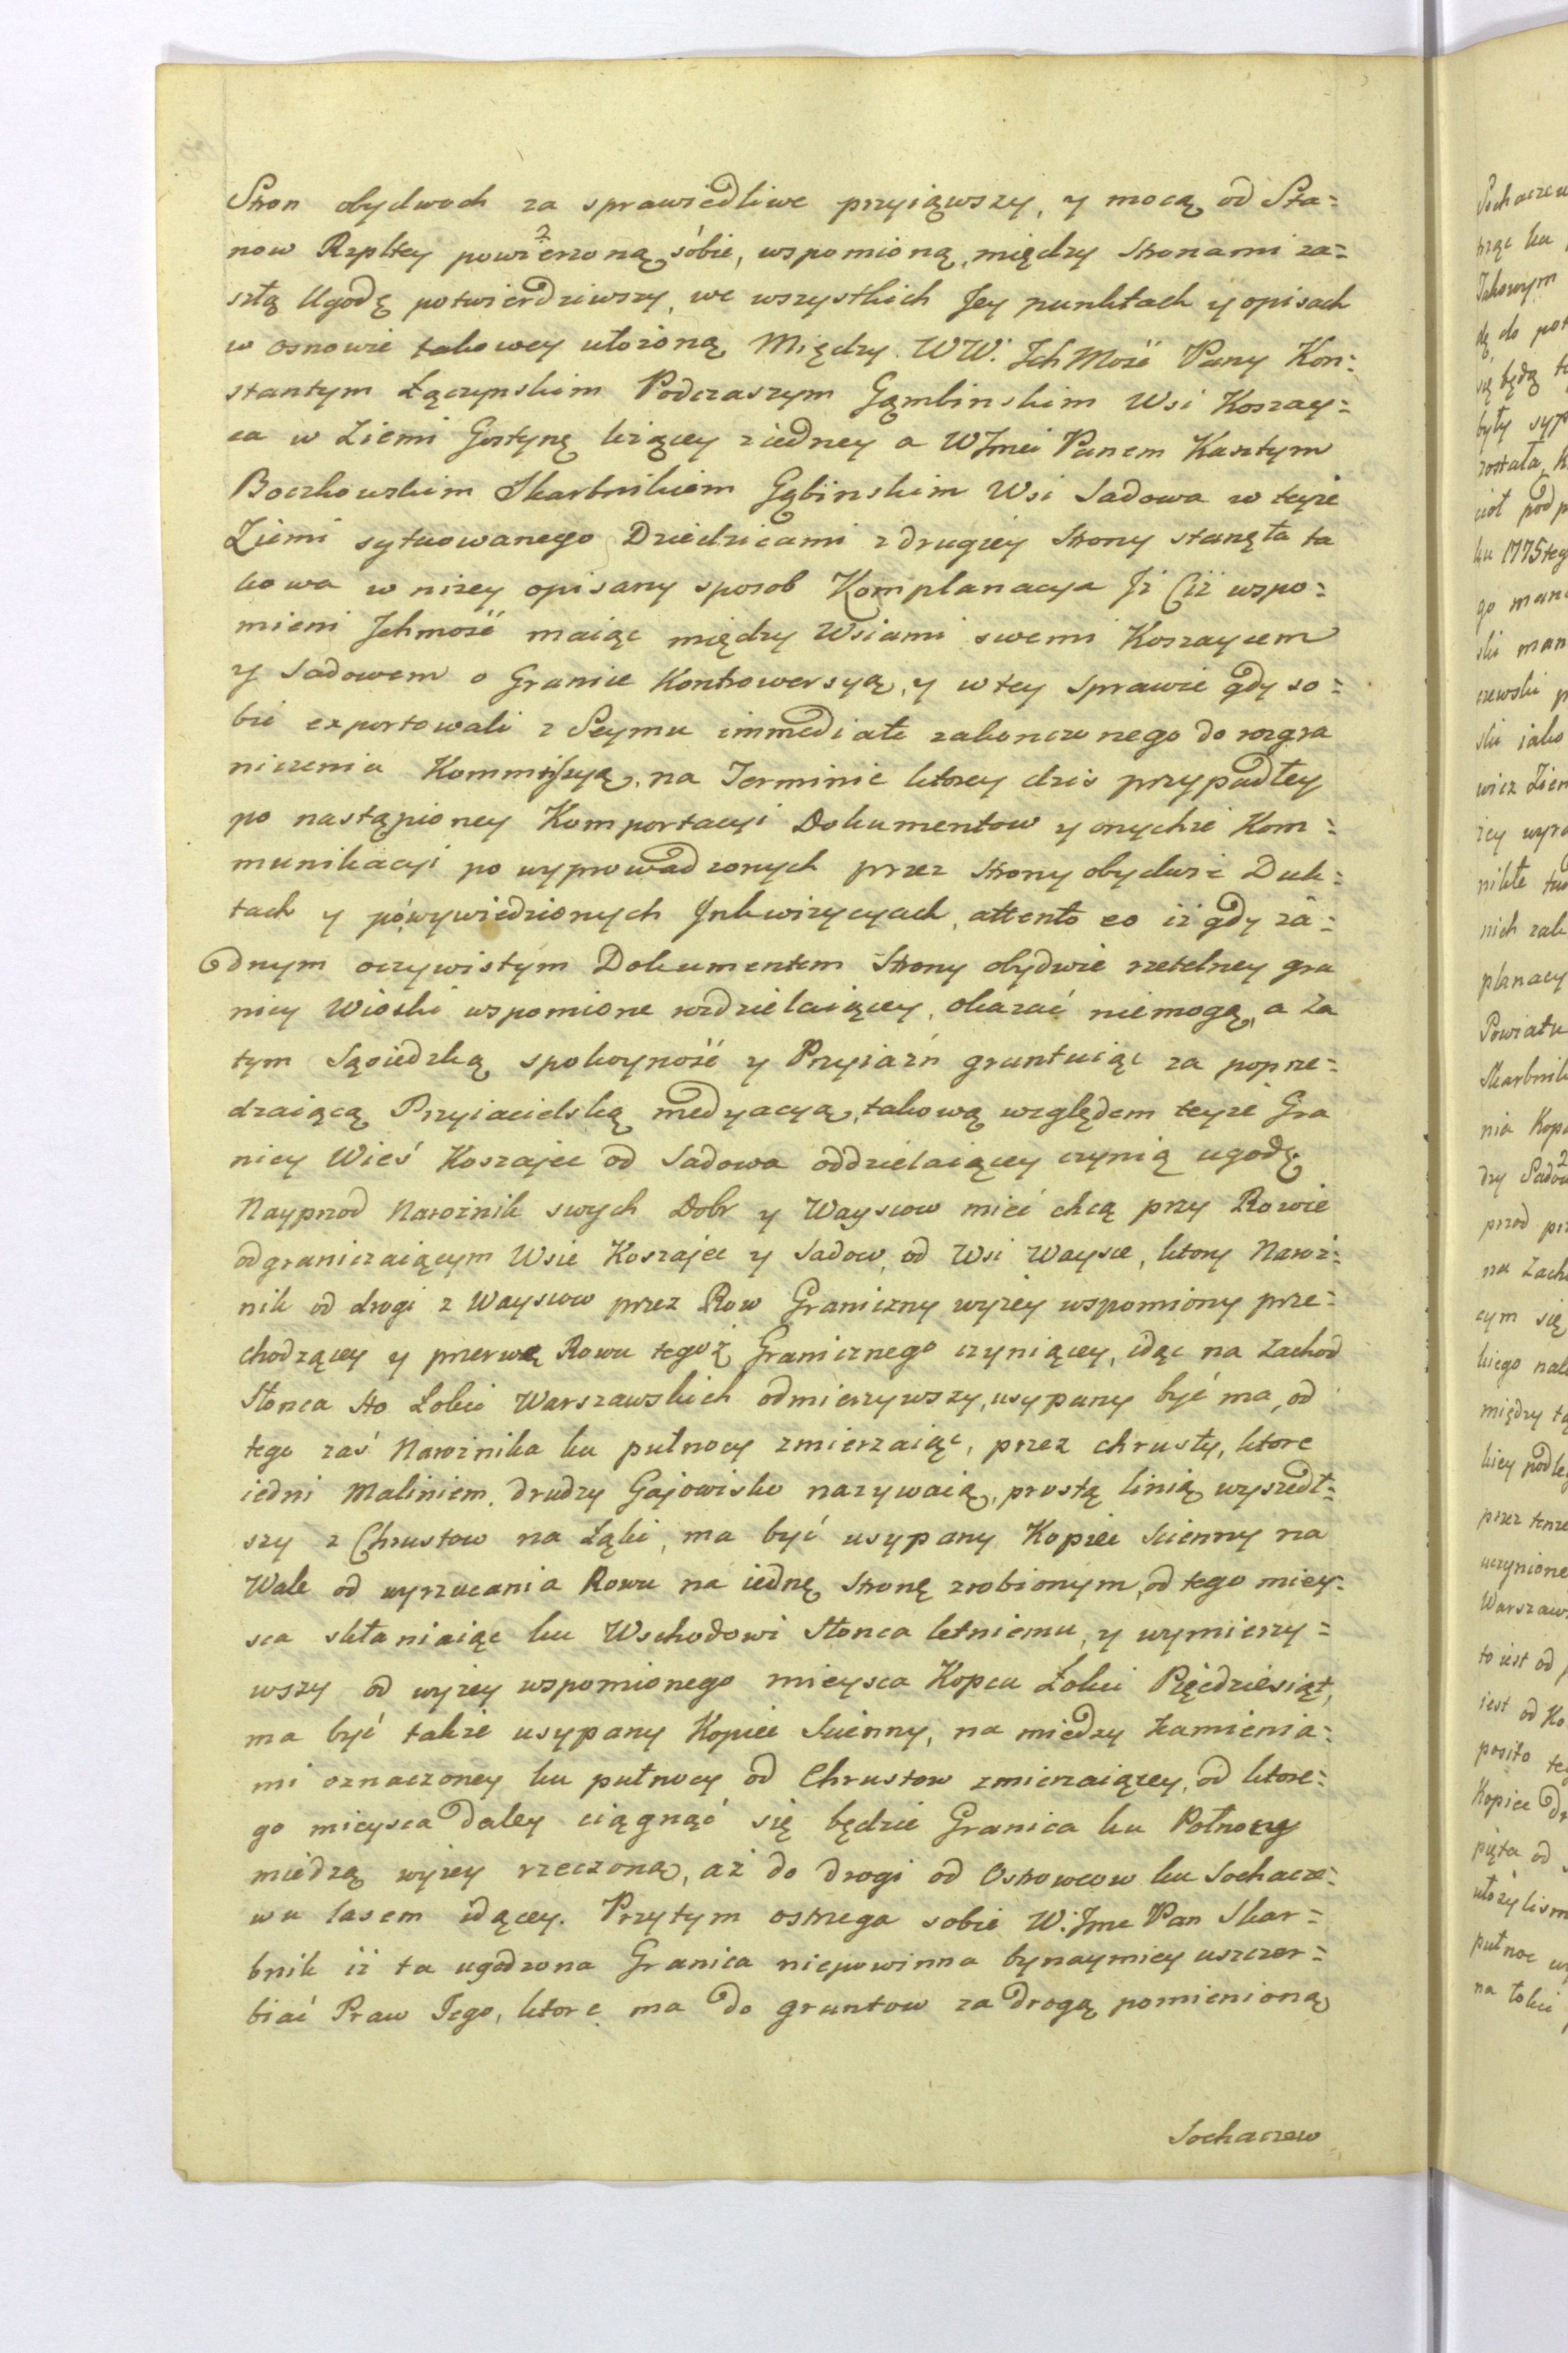 Stron obydwoch za sprawiedliwe przyiąwszy, y mocą od Sta=
now Rzpltey powierzoną sobie, wspomioną między Stronami za=
szłą Ugodę potwierdziwszy, we wszystkich Jey punktach y opisach
w osnowie takowey ułożoną Między WW. Ich Mość Pany Kon=
stantym Łączynskim Podczaszym Gąmbinskim Wsi Koszay=
ca w Ziemi Gostynę leżącey ziedney a WJmci Panem Kasztym
Boczkowskim Skarbnikiem Gąbinskim Wsi Sadowa w teyże
Ziemi sytuowanego Dziedzicami z drugiey Strony stanęła ta
kowa w niżey opisany sposob Komplanacya Iż Ciż wspo=
mieni Ichmość maiąc między Wsiami swemi Koszaycem
y Sadowem o Granice Kontrowersyą, y w tey Sprawie gdy so=
bie exportowali z Seymu immediate zakonczonego do rozgra
niczenia Kommissyą, na Terminie ktorey dzis przypadłey
po nastąpioney Komportacyi Dokumentow y onychże Kom=
munikacyi po wyprowadzonych przez Strony obydwie Duk=
tach y powywiedzionych Inkwizycyach, attento eo iż gdy ża=
dnym oczywistym Dokumentem Strony obydwie rzetelney gra
nicy Wioski wspomione rozdzielaiącey, okazać niemogą, a za
tym Sąsiedzką spokoyność y Przyiaźń gruntuiąc za poprze=
dzaiącą Przyiacielską medyacyą, takową względem teyże Gra
nicy Wieś Koszajec od Sadowa oddzielaiącey czynią ugodę.
Nayprzod Narożnik swych Dobr y Waysow mieć chcą przy Rowie
odgraniczaiącym Wsie Koszajec y Sadow, od Wsi Wayse, ktory Naroż=
nik od drogi z Waysow przez Row Graniczny wyżey wspomiony prze=
chodzącey y przerwę Rowu tegoż Granicznego czyniącey, idąc na Zachod
Słonca sto Łokci Warszawskich odmierzywszy, usypany być ma, od
tego zaś Narożnika ku pułnocy zmierzaiąc, przez chrusty, ktore
iedni Maliniem, drudzy Gajowisko nazywaią, prostą linią wyszedł=
szy z Chrustow na Łąki, ma być usypany Kopiec Scienny na
Wale od wyrzucania Rowu na iednę Stronę zrobionym, od tego miey=
sca skłaniaiąc ku Wschodowi Słonca letniemu, y wymierzy=
wszy od wyżey wspomionego mieysca Kopca Łokci Pięcdziesiąt,
ma być także usypany Kopiec Scienny, na miedzy kamienia=
mi oznaczoney ku pułnocy od Chrustow zmierzaiącey, od ktore=
go mieysca daley ciągnąć się będzie Granica ku Połnocy
miedzą wyżey rzeczoną, aż do drogi od Ostrowcow ku Sochacze=
wu lasem idącey. Przytym ostrzega sobie W: Jmc Pan Skar=
bnik iż ta ugodzona Granica niepowinna bynaymiey uszczer=
biać Praw Jego, ktore ma do gruntow za drogą pomienioną
Sochaczew